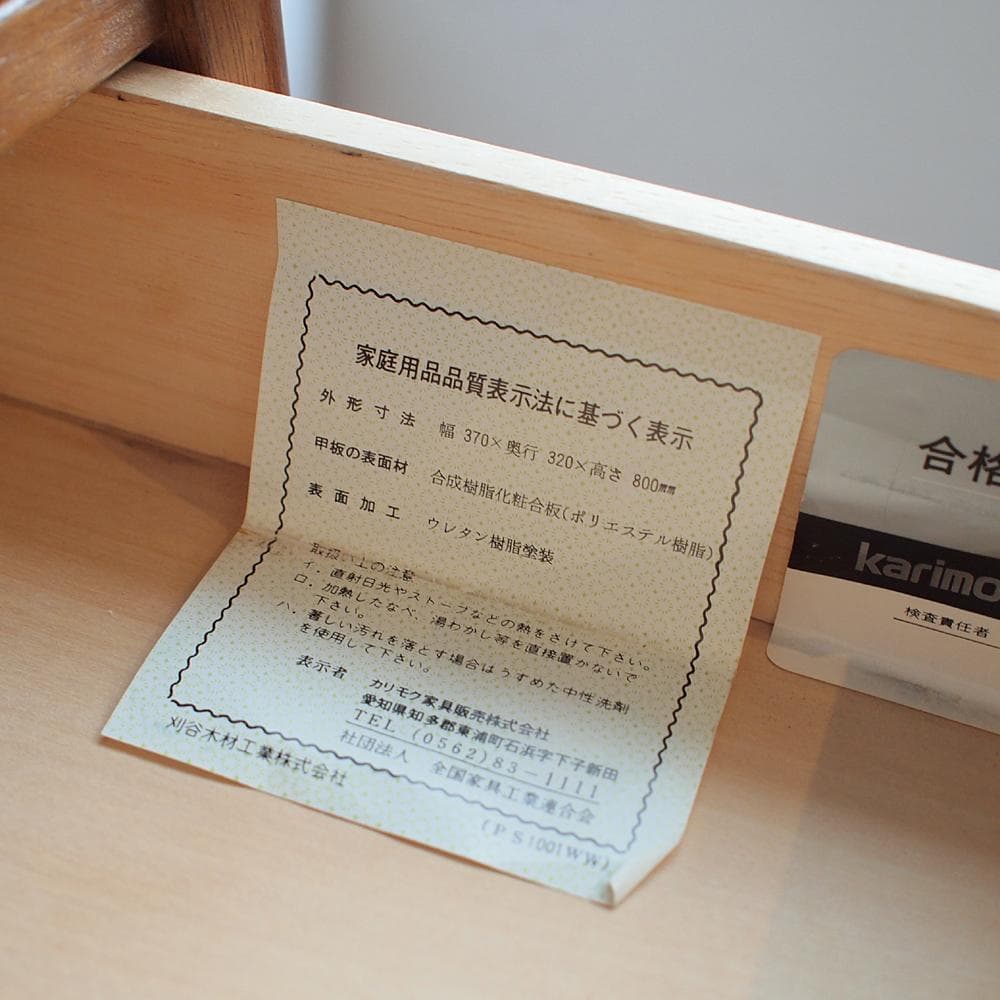 家庭用品品質表示法に基づく表示
外形寸法 幅 370×奥行 320×高さ 800㎜
甲板の表面材 合成樹脂化粧合板(ポリエステル樹脂)
表面加工 ウレタン樹脂塗装
取扱い上の注意
イ．直射日光やストーブなどの熱をさけて下さい。
ロ．加熱したなべ、湯わかし等を直接置かないで
下さい。
ハ．著しい汚れを落とす場合はうすめた中性洗剤
を使用して下さい。
表示者 カリモク家具販売株式会社
愛知県知多郡東浦町石浜字下子新田
TEL (0562)83-1111
社団法人 全国家具工業連合会
刈谷木材工業株式会社
(PS1001WW)
合格
karimo
検査責任者